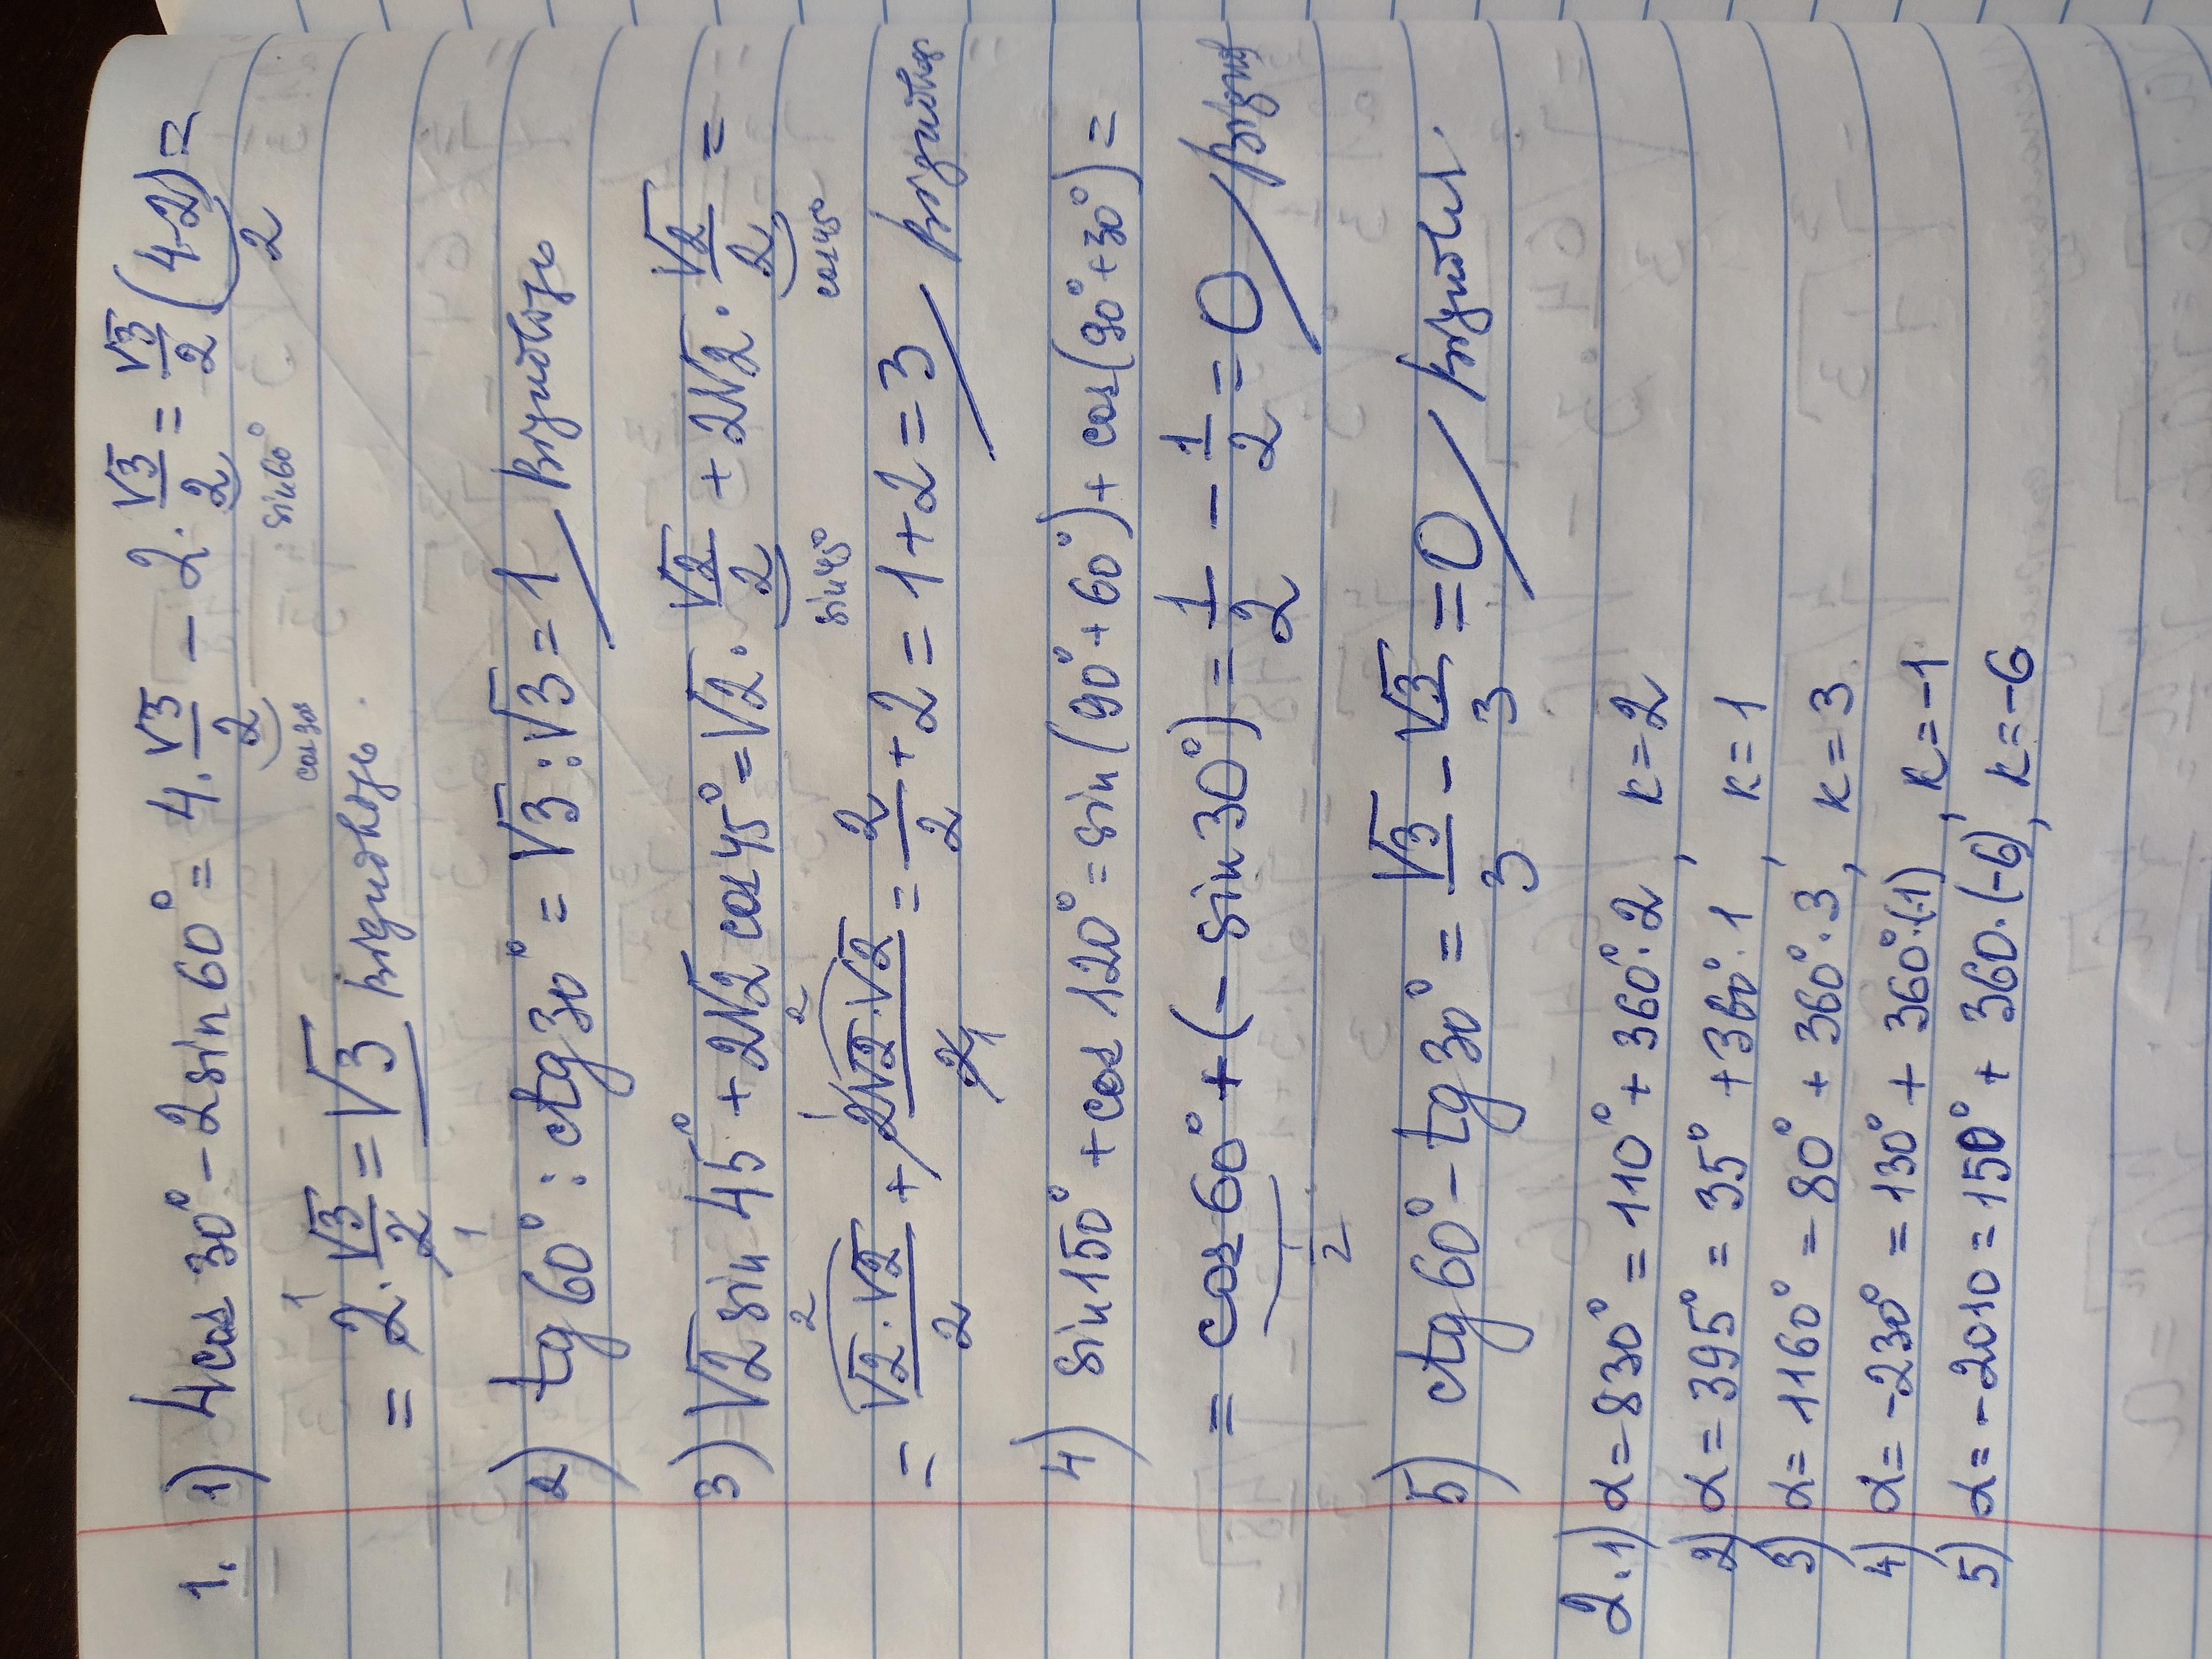 1. 1) 4cos 30° - 2 sin 60° = 4 · √3/2 - 2 · √3/2 = √3/2 (4-2) =
cos 30 sin 60° 2
= 2 · √3/2 = √3 відповідь.
1 1
2) tg 60° : ctg 30° = √3 : √3 = 1 відповідь
3) √2 sin 45° + 2√2 cos 45° = √2 · √2/2 + 2√2 · √2/2 =
2 2 sin 45° cos 45°
= √2 · √2/2 + 2√2 · √2/2 = 2/2 + 2 = 1 + 2 = 3 відповідь
1 1
4) sin 150° + cos 120° = sin (90° + 60°) + cos (90° + 30°) =
= cos 60° + (- sin 30°) = 1/2 - 1/2 = 0
1/2
5) ctg 60° - tg 30° = √3/3 - √3/3 = 0
2. 1) α = 830° = 110° + 360° · 2, к = 2
2) α = 395° = 35° + 360° · 1, к = 1
3) α = 1160° = 80° + 360° · 3, к = 3
4) α = -230° = 130° + 360° · (-1), к = -1
5) α = -2010 = 150° + 360 · (-6), к = -6